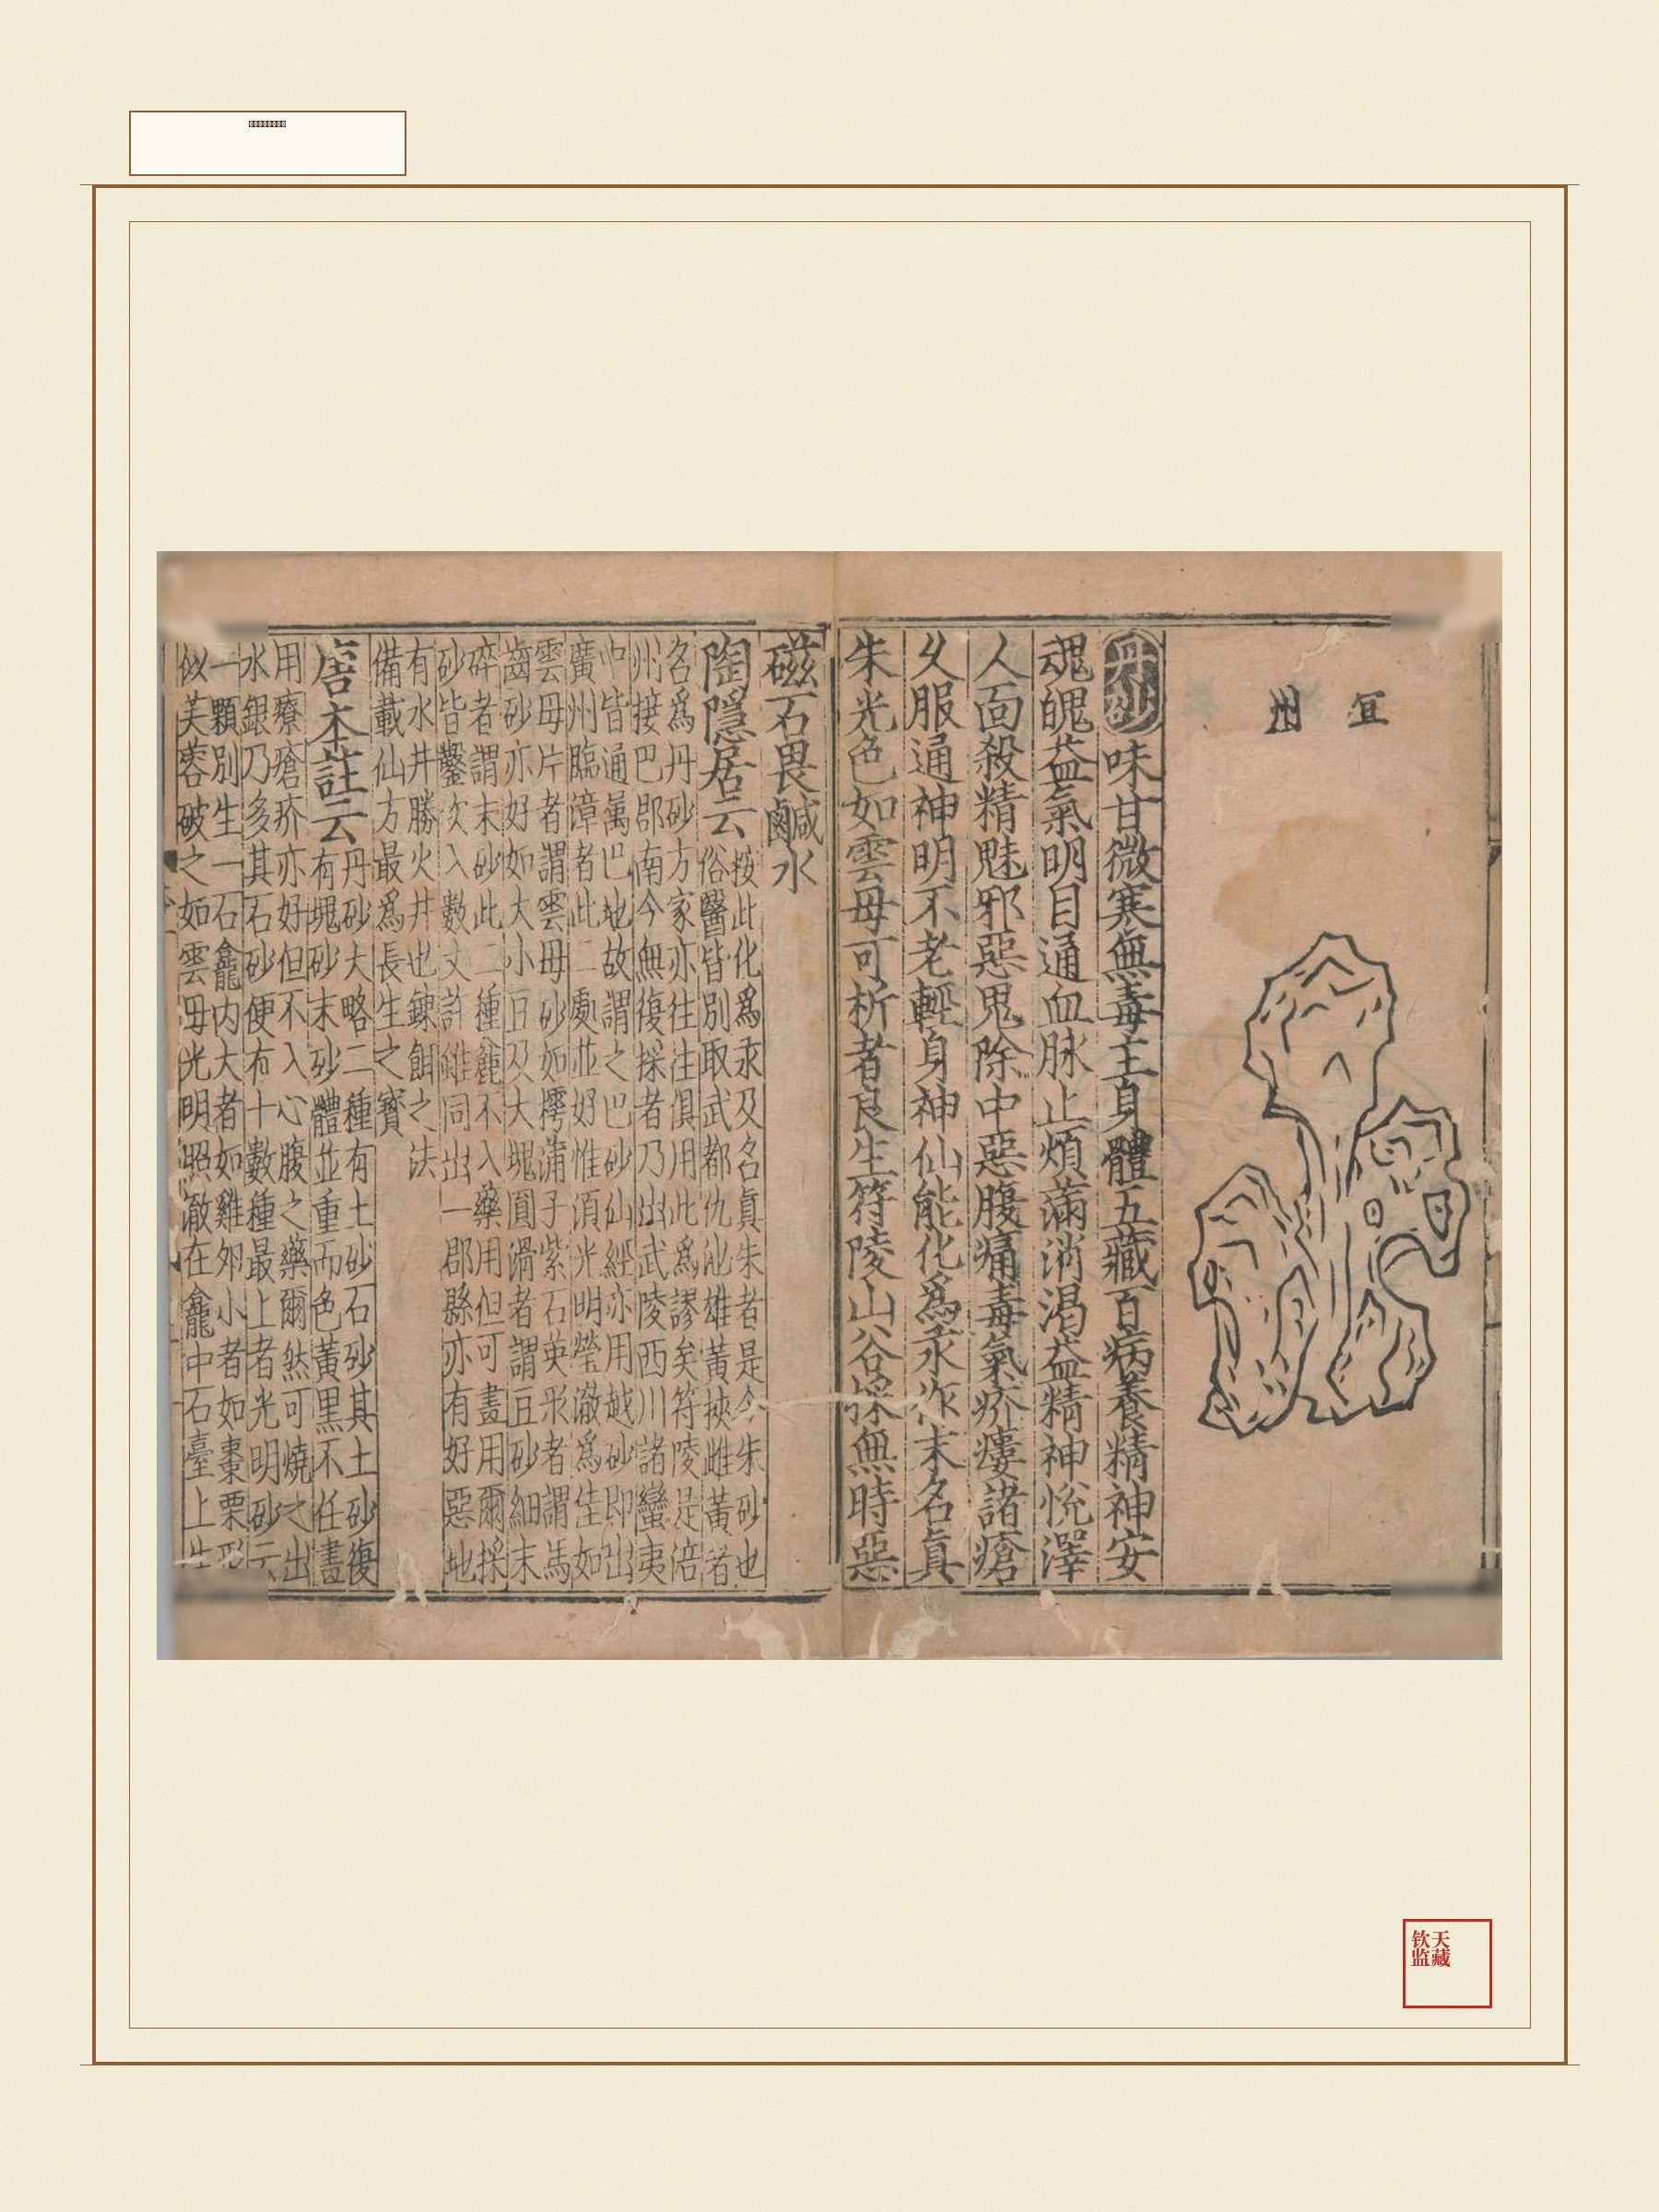 宜州
丹砂味甘微寒無毒主身體五藏百病養精神安
魂魄益氣明目通血脉止煩滿消渴益精神恱澤
人面殺精魅邪惡鬼除中惡腹痛毒氣疥瘻諸瘡
乆服通神明不老輕身神仙能化爲汞作末名眞
朱光色如雲母可析者良生符陵山谷採無時惡
磁石畏鹹水
陶隱居云按此化爲汞及名眞朱者是今朱砂也
俗醫皆別取武都仇池雄黃挾雌黃者
名爲丹砂方家亦徃徃俱用此爲謬矣符陵是涪
州接巴郡南今無復採者乃出武陵西川諸蠻夷
中皆通属巴地故謂之巴砂仙經亦用越砂即出
廣州臨漳者此二處並好惟須光明瑩澈爲佳如
雲母片者謂雲母砂如樗蒲子紫石英形者謂馬
齒砂亦好如大小豆及大塊圓滑者謂豆砂細末
碎者謂末砂此二種麄不入藥用但可畫用爾採
砂皆鑿次入數丈許雖同出一郡縣亦有好惡地
有水井勝火井也鍊餌之法
備載仙方最爲長生之寳
唐本註云丹砂大略二種有土砂石砂其土砂復
有塊砂末砂體並重而色黃黑不任畫
用療瘡疥亦好但不入心腹之藥爾然可燒之出
水銀乃多其石砂便有十數種最上者光明砂云
一顆別生一石龕内大者如雞卵小者如棗栗形
似芙蓉破之如雲母光明照澈在龕中石臺上生
钦天
监藏